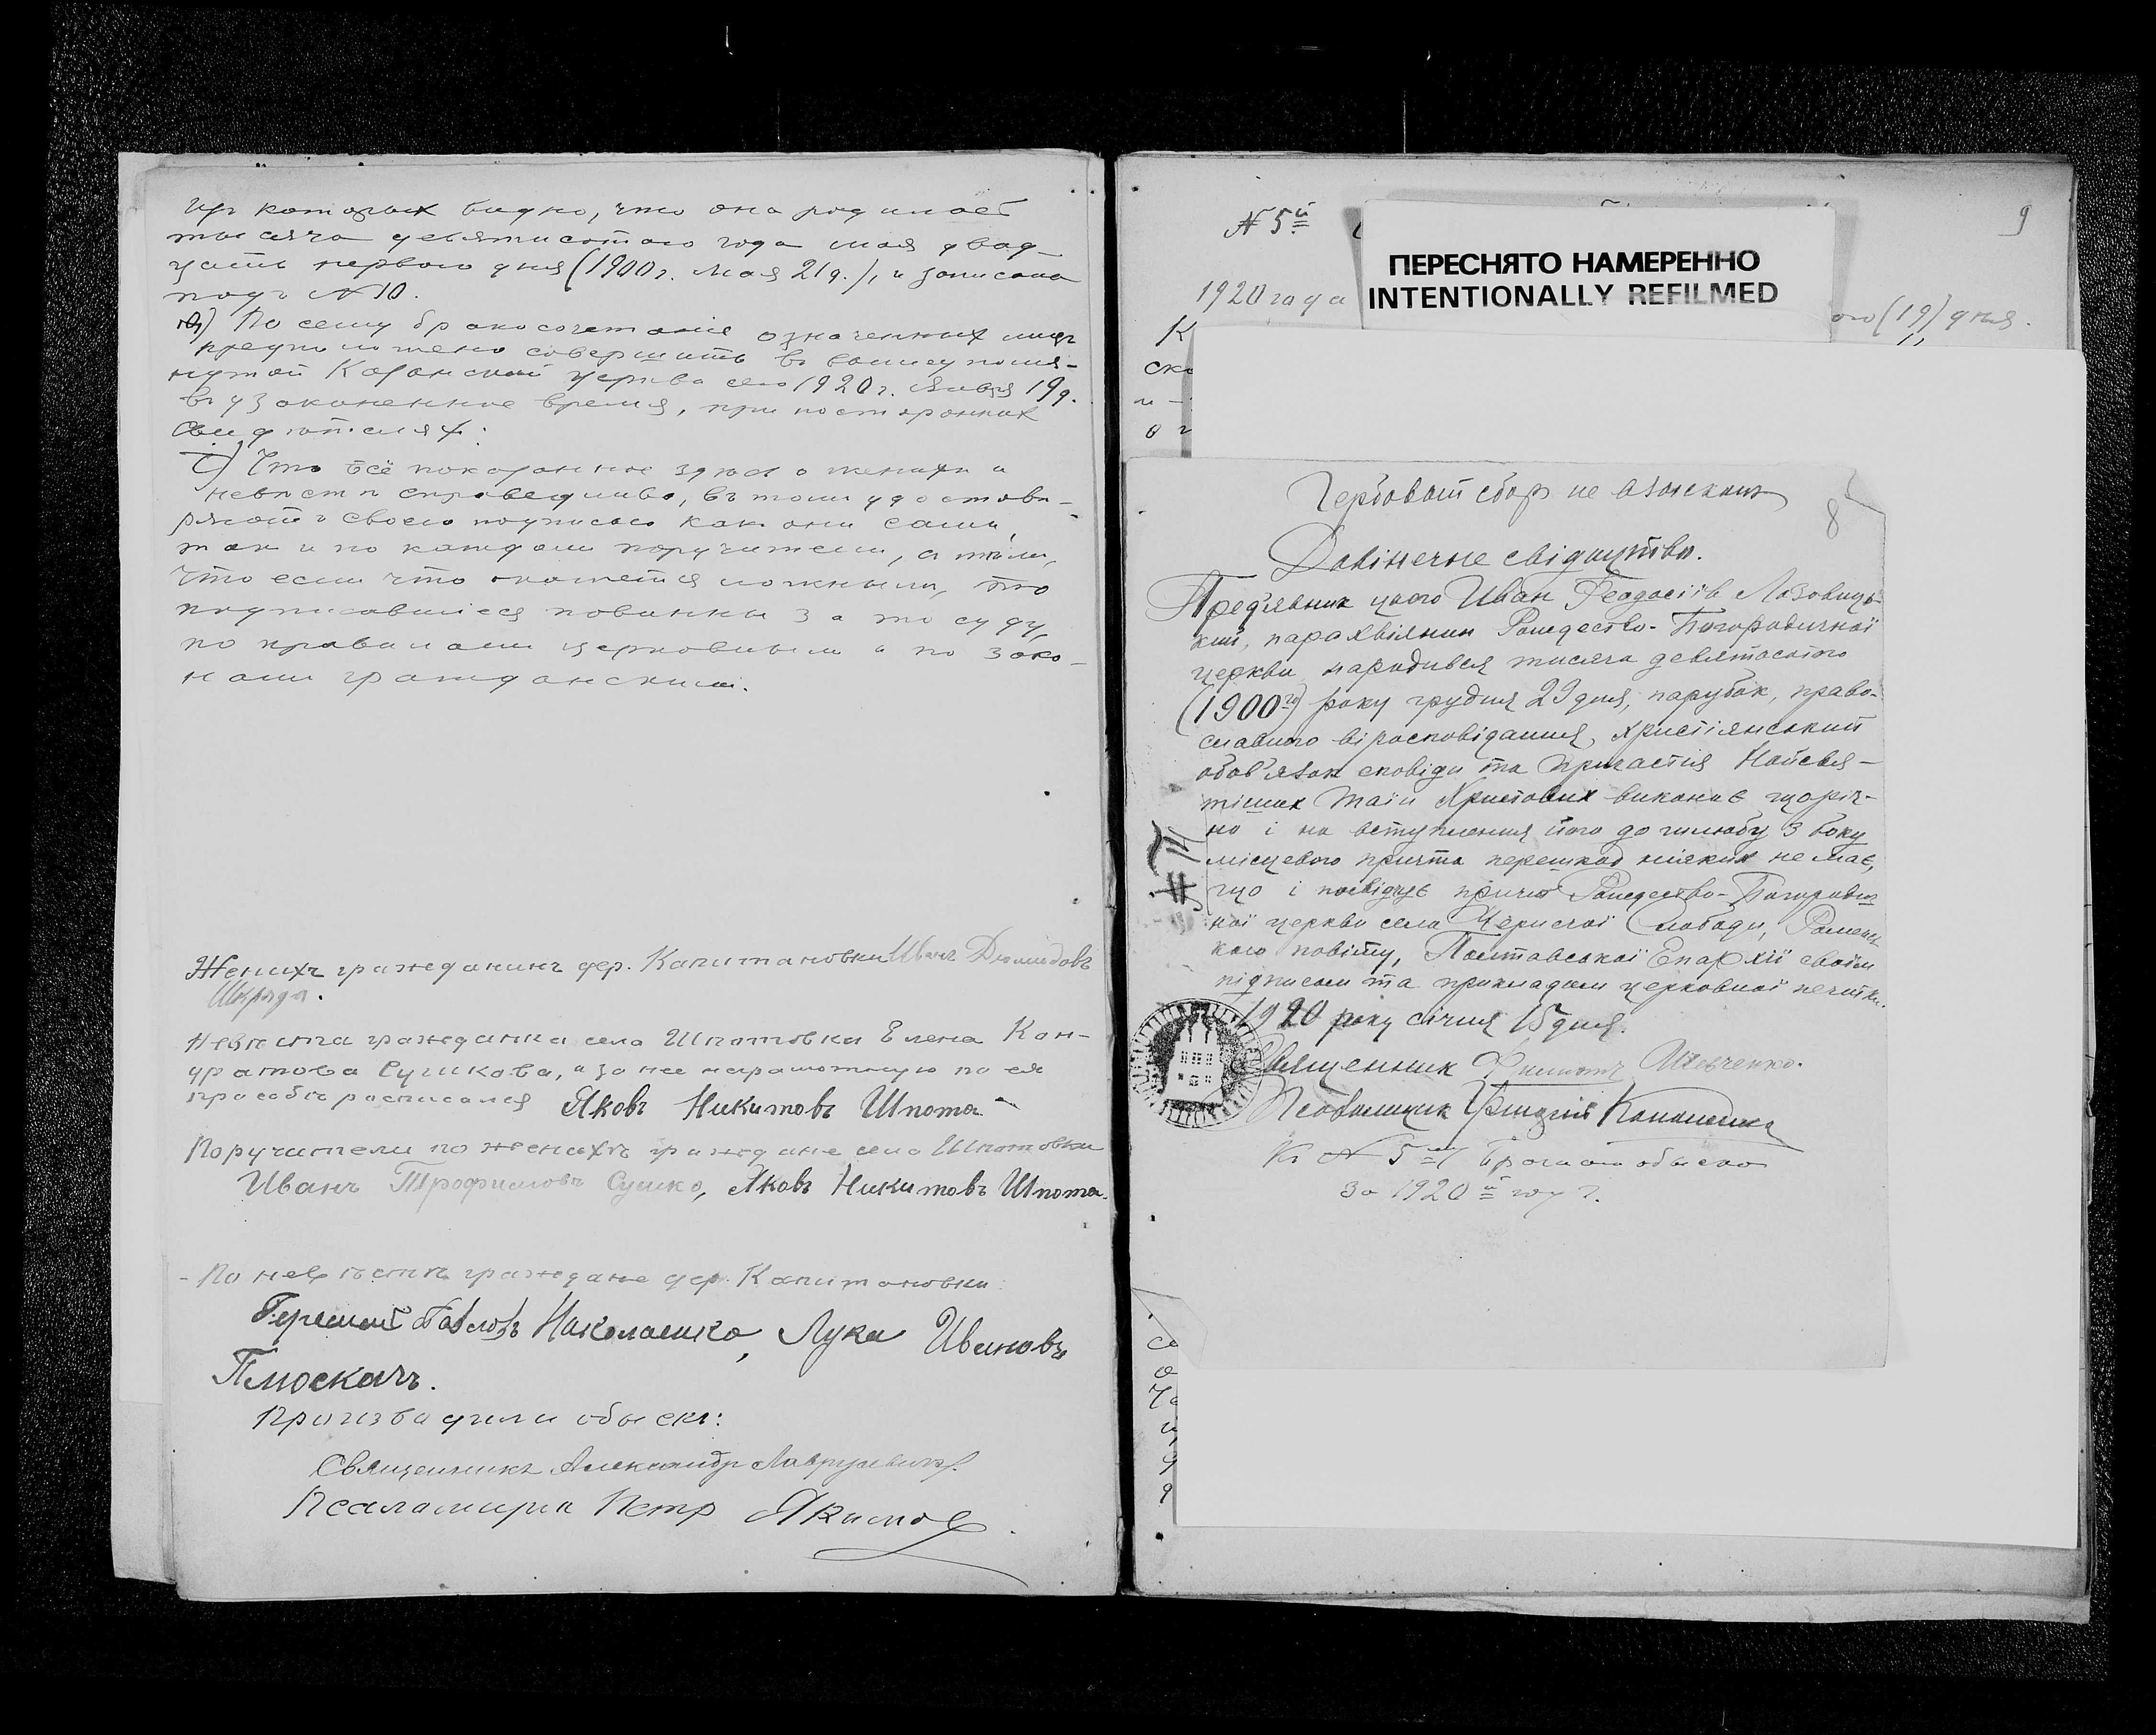 изъ которых видно, что она родилась
тысяча девятисотого года мая двад-
цать первого дня (1900 г. Мая 21 д.), и записана
подъ № 10.
По сему бракосочетание означенных лицъ
предположено совершить въ вышеупомя-
нутой Казанской церкви сего 1920 г. Января 19 д.
въ узаконенное время, при посторонних
свидѣтелях.
Что всё показанное здѣсь о женихѣ и
невѣстѣ справедливо, въ томъ удостовѣ-
ряютъ своею подписью как они сами,
так и по каждом поручители, с тѣм,
что если что окажется ложным, то
подписавшиеся повинны за то суду,
по правилам церковным и по зако-
нам гражданским.
Женихъ гражданинъ дер. Капитановки Иванъ Диомидовъ
Шкряда.
Невѣста гражданка села Шпотовки Елена Кон-
дратова Сушкова, а за нее неграмотную по ея
просьбѣ росписался Яковъ Никитовъ Шпота
Поручители по женихѣ граждане села Шпотовки
Иванъ Трофимовъ Сушко, Яковъ Никитовъ Шпота.
- По невѣстѣ граждане дер. Капитановки
Павловъ Николаенко, Лука Ивановъ
Плюскачъ.
Производили обыскъ:
Священникъ Александр
Псаломщик Петр Якимов.
№ 5й
9
ПЕРЕСНЯТО НАМЕРЕННО
INTENTIONALLY REFILMED
1920 года
ого (19) дня.
Гербовый сбор не взыскан
8
Довінечне свідоцтво.
Пред'явник цього Иван Феодосіїв Лазовиць-
кий, парахвіянин Рождество-Богородичної
церкви народився тисяча девятосотого
(1900го) року грудня 29 дня, парубок, право-
славного віросповідання, християнський
обов'язок сповіди та причастія Найсвя-
тіших Таїн Христових виконує щоріч-
но і на вступления його до шлюбу з боку
місцевого причта перешкод ніяких не має,
що і посвідчує причт Рождество-Богородич
ної церкви села Чернечої Слободи, Роменсь
кого повіту, Полтавської Епархії своїм
підписом та прикладом церковної печатки.
1920 року січня 15 дня.
Священник Филипп Шевченко.
Псаломщик
Къ № 5му Брачного обыска
За 1920й годъ.